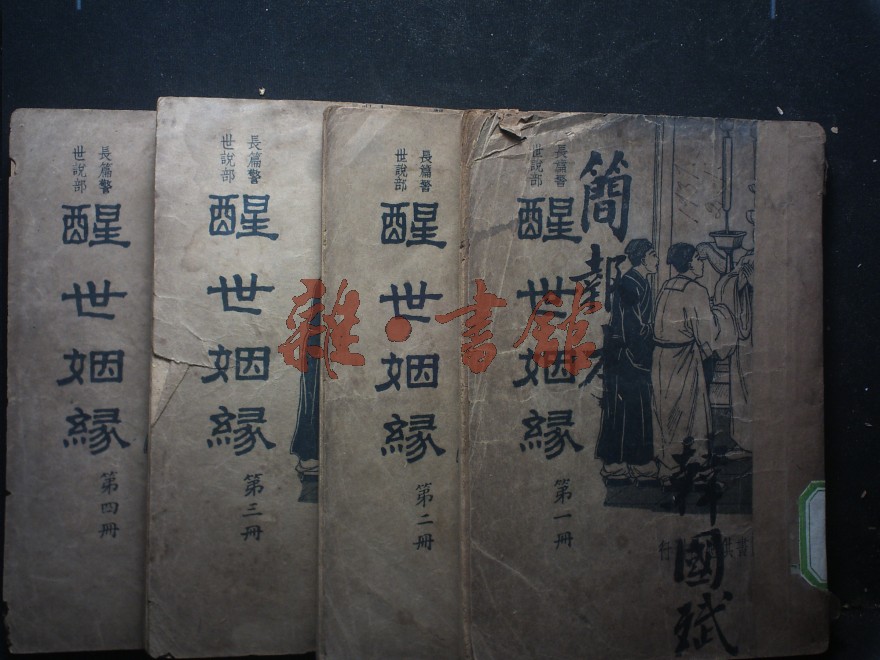 長篇警
世說部
醒世姻緣
第一冊
簡報本
韓國斌
長篇警
世說部
醒世姻緣
第二冊
長篇警
世說部
醒世姻緣
第三冊
長篇警
世說部
醒世姻緣
第四冊
雜·書館